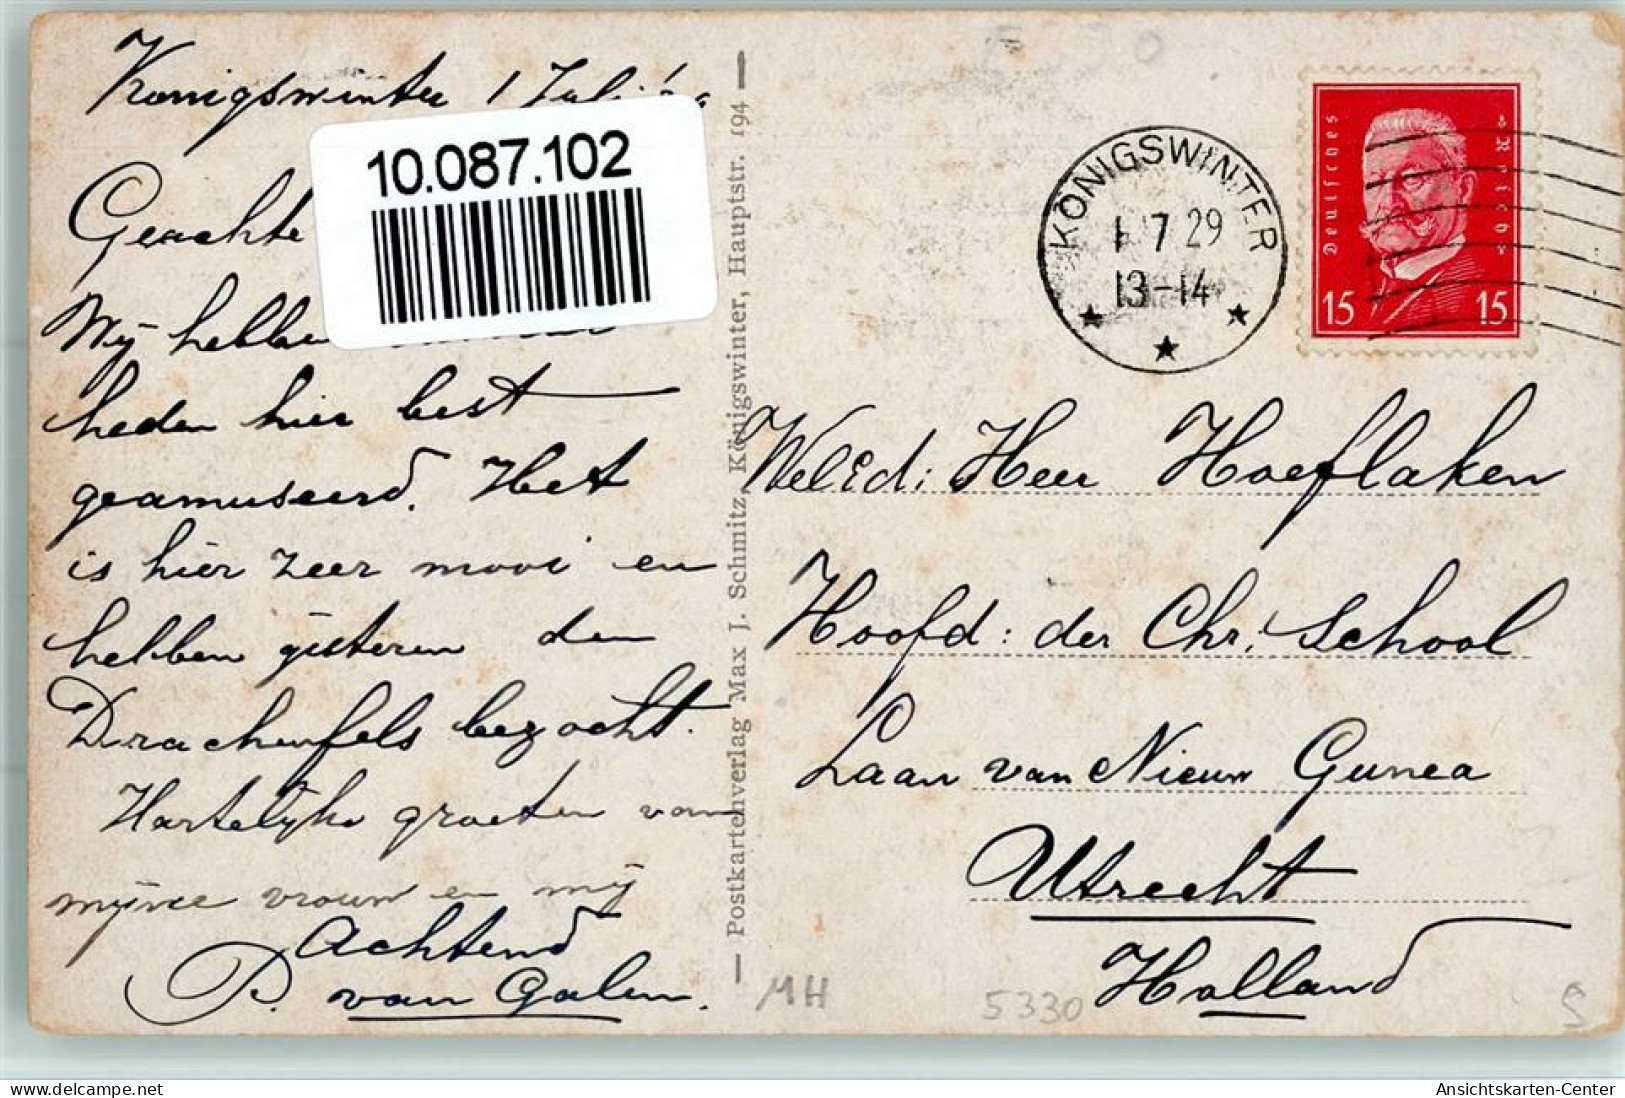 Konigswinter 1 Juli
10.087.102
Geachte
Wij hebben
heden hier best
geamuseerd. Het
is hier zeer mooi en
hebben gisteren den
Drachenfels bezocht.
Hartelijke groeten van
mijne vrouw en mij
Achtend
P. van Galen.
— Postkartenverlag Max J. Schmitz, Königswinter, Hauptstr. 194 —
KÖNIGSWINTER
1.7.29
13-14
Deutsches Reich
15 15
WelEd: Heer Hoeflaken
Hoofd: der Chr: School
Laan van Nieuw Gunea
Utrecht
Holland
MH
5330
S
delcampe.net
Ansichtskarten-Center